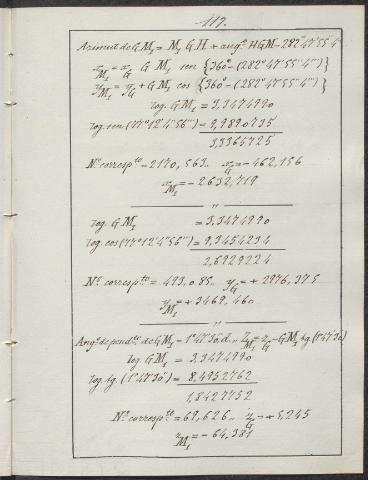 117.
Azimut de G M₁ = M₁ G H + angº HGM = 282º 47' 55" 4'"
x_M₁ = x_G - G M₁ sen {360º - (282º 47' 55" 4'")}
y_M₁ = y_G + G M₁ cos {360º - (282º 47' 55" 4'")}
log. G M₁ = 3,3474990
log. sen (77º 12' 4" 56'") = 9,9890735
3,3365725
Nº correspte = 2170,563.. x_G = - 462,156
x_M₁ = - 2632,719
"
log. G M₁ = 3,3474990
log. cos (77º 12' 4" 56'") = 9,3454234
2,6929224
Nº correspte = 493,085.. y_G = + 2976,375
y_M₁ = + 3469,460
"
Angº dependte de G M₁ = 1º 47' 30" d.. z_M₁ = z_G - G M₁ tg (1º 47' 30")
log G M₁ = 3,3474990
log. tg. (1º 47' 30") = 8,4952762
1,8427752
Nº correspte = 69,626.. z_G = + 5,245
z_M₁ = - 64,381